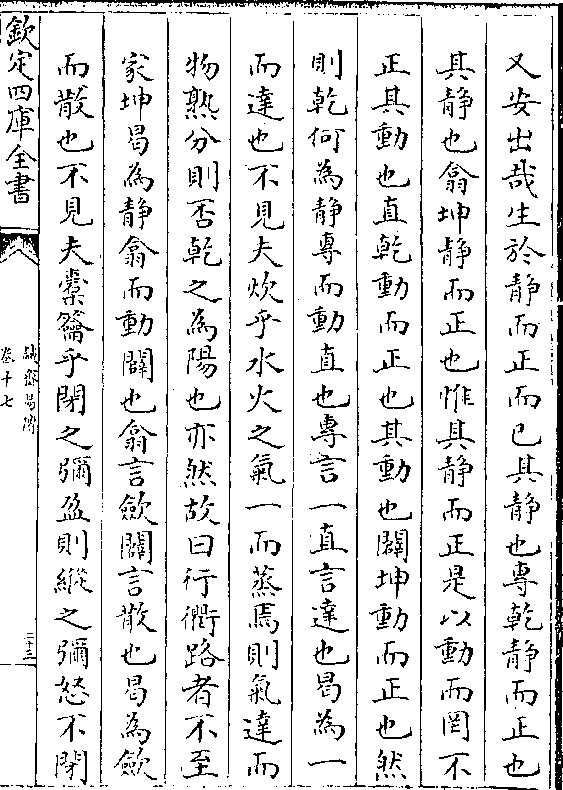 又安出哉生於静而正而已其静也專乾静而正也
其静也翕坤静而正也惟其静而正是以動而罔不
正其動也直乾動而正也其動也闢坤動而正也然
則乾何為静專而動直也專言一直言達也曷為一
而達也不見夫炊乎水火之氣一而蒸焉則氣達而
物熟分則否乾之為陽也亦然故曰行衢路者不至
家坤曷為静翕而動闢也翕言歛闢言散也曷為歛
而散也不見夫橐籥乎閉之彌盈則縱之彌怒不閉
欽定四庫全書
誠齋易傳
卷十七
二十三